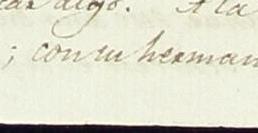 algo. A la
; con su herman